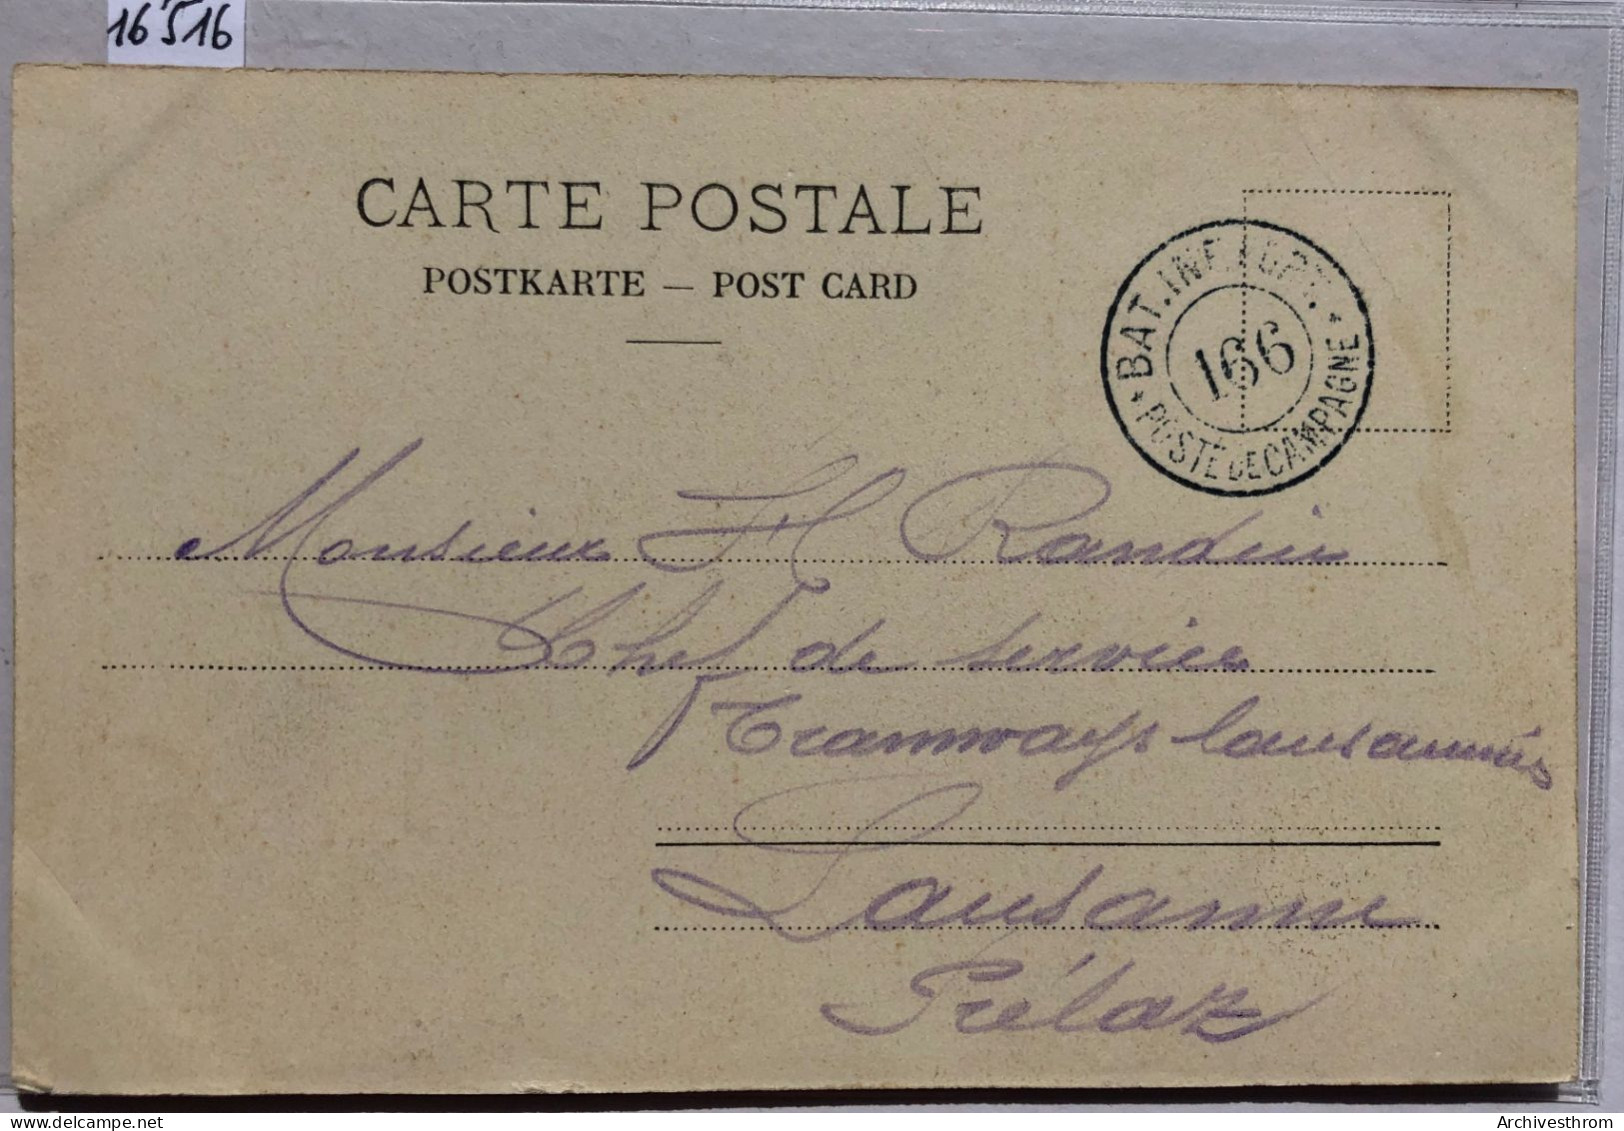 16516
CARTE POSTALE
POSTKARTE — POST CARD
* BAT. INF. *
166
POSTE DE CAMPAGNE
Monsieur H Randin
Chef de service
Tramways lausannois
Lausanne
Prélaz
Archivesthrom